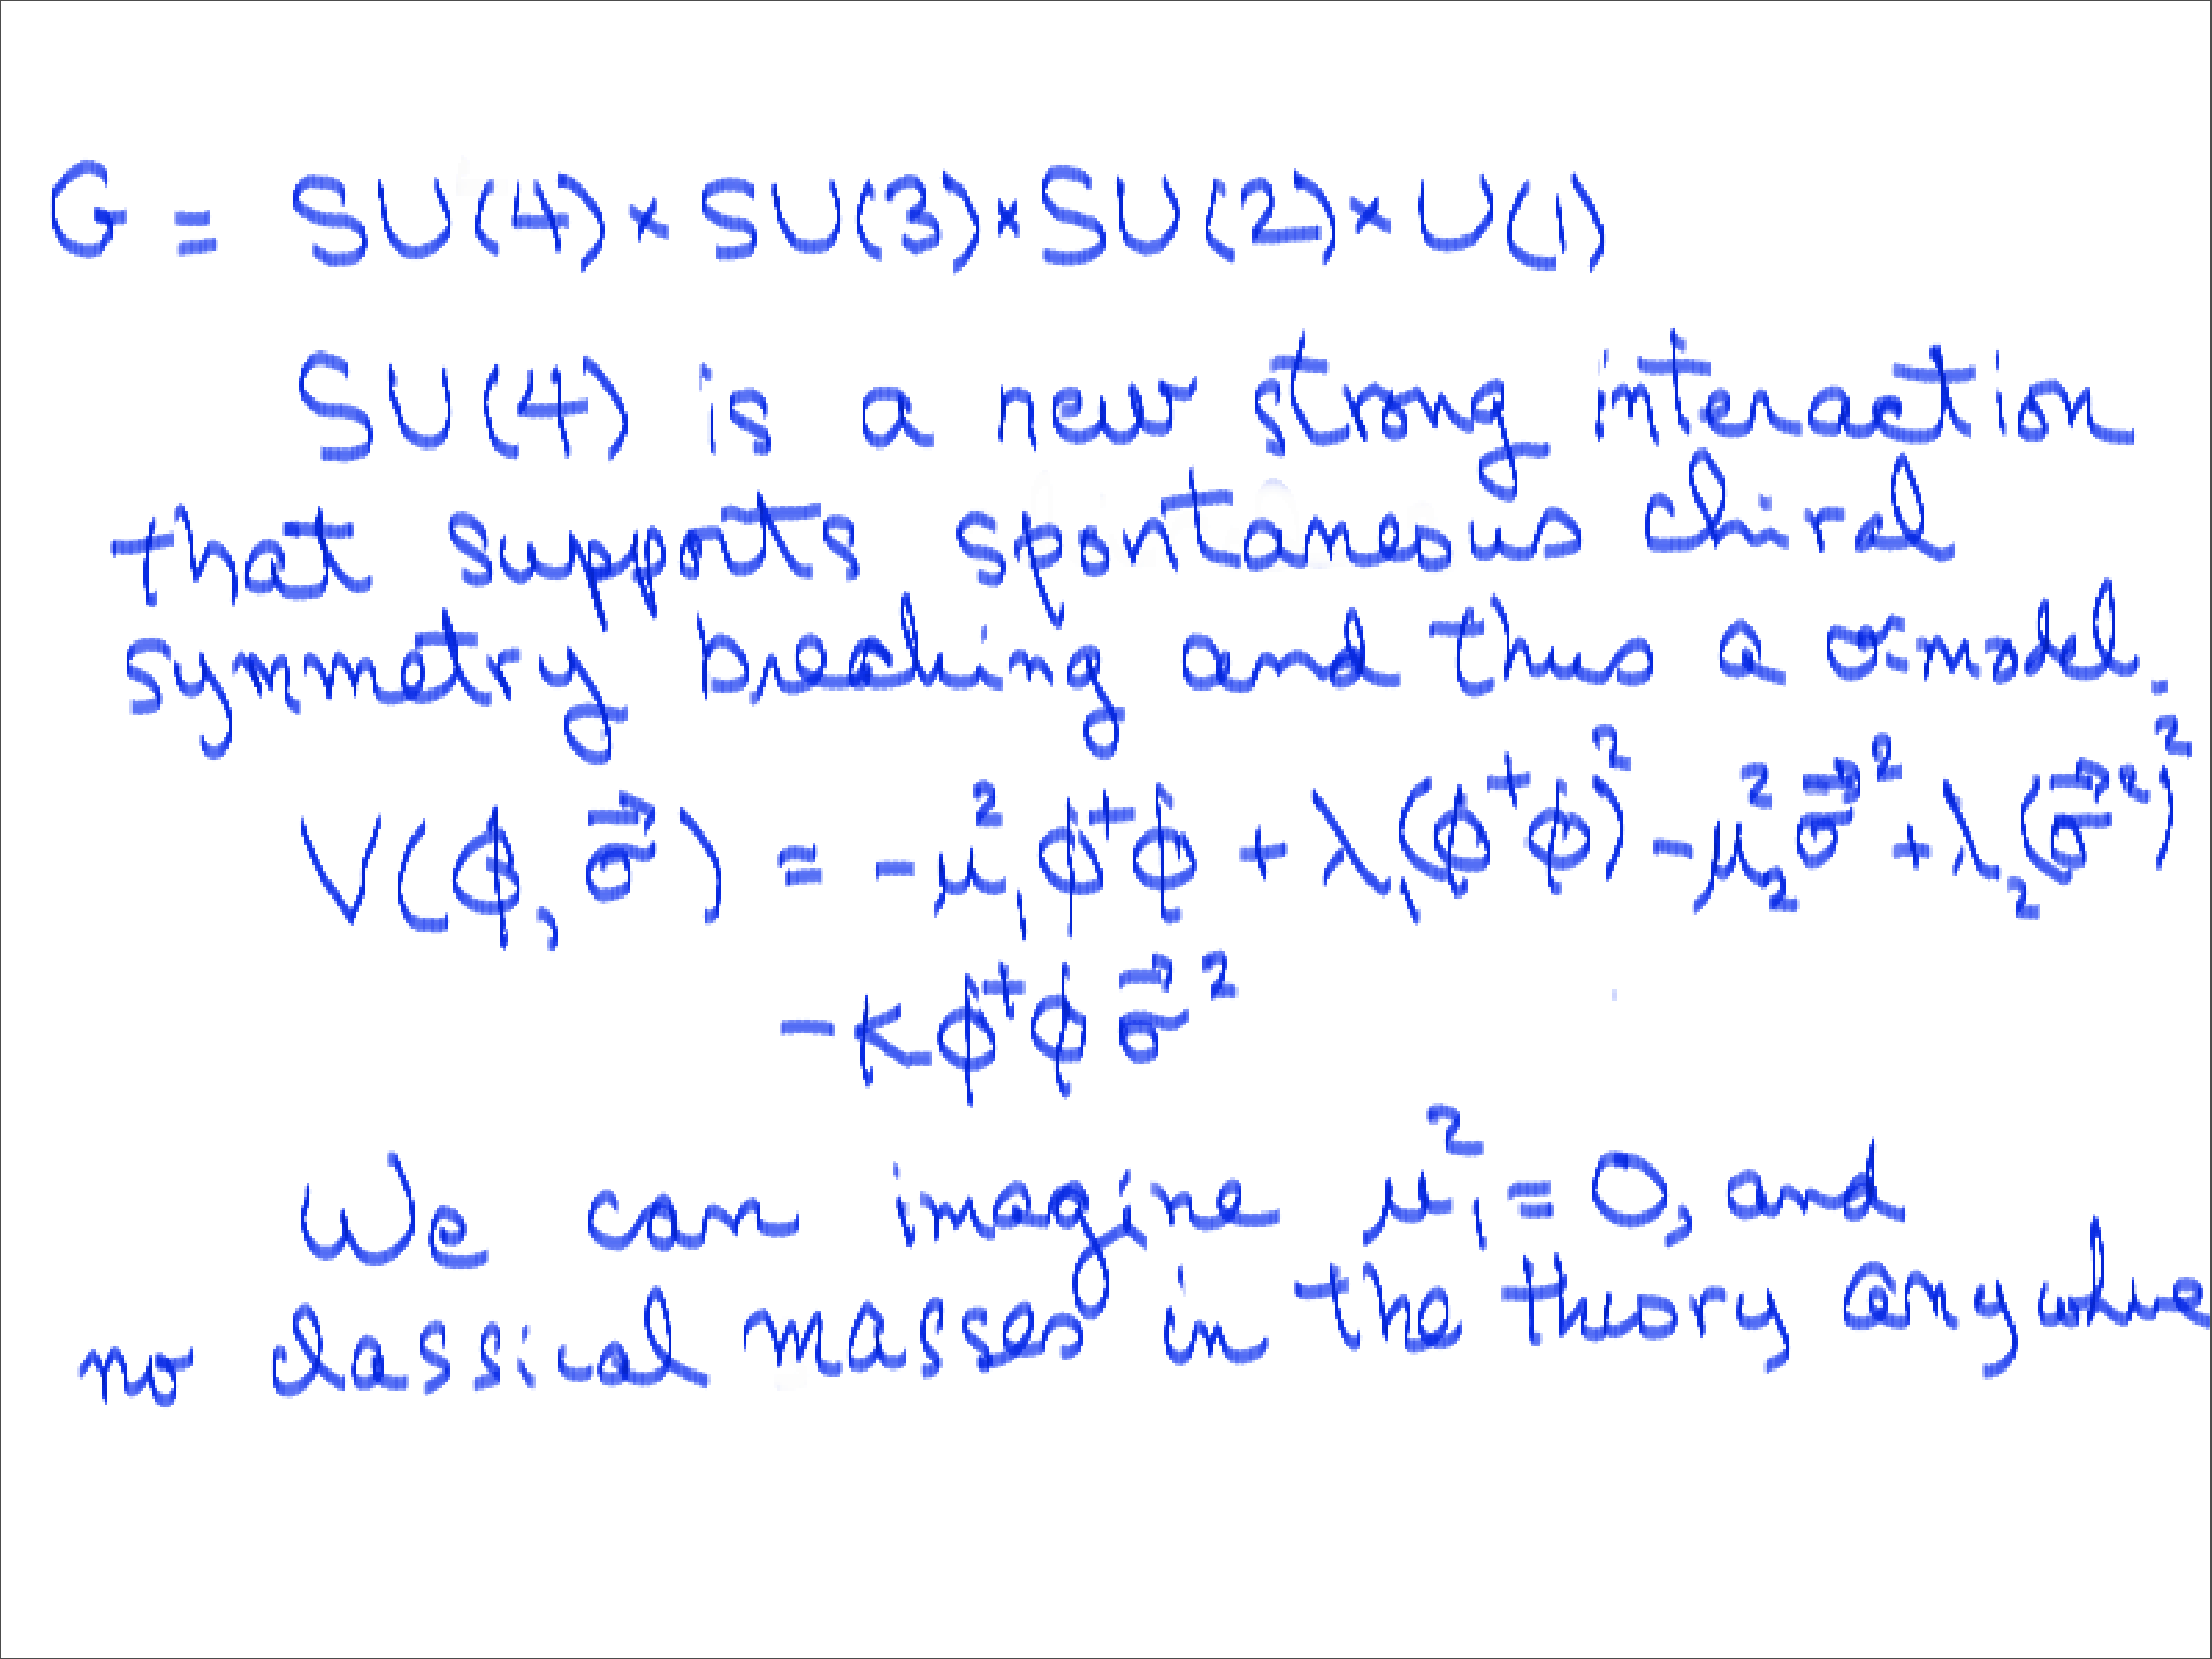 G = SU(4) × SU(3) × SU(2) × U(1)
SU(4) is a new strong interaction
that supports spontaneous chiral
symmetry breaking and thus a σ-model.
V(ϕ, σ⃗) = -μ₁² ϕ†ϕ + λ₁(ϕ†ϕ)² - μ₂² σ⃗² + λ₂(σ⃗²)²
- κ ϕ†ϕ σ⃗²
We can imagine μ₁² = 0, and
no classical masses in the theory anywhere